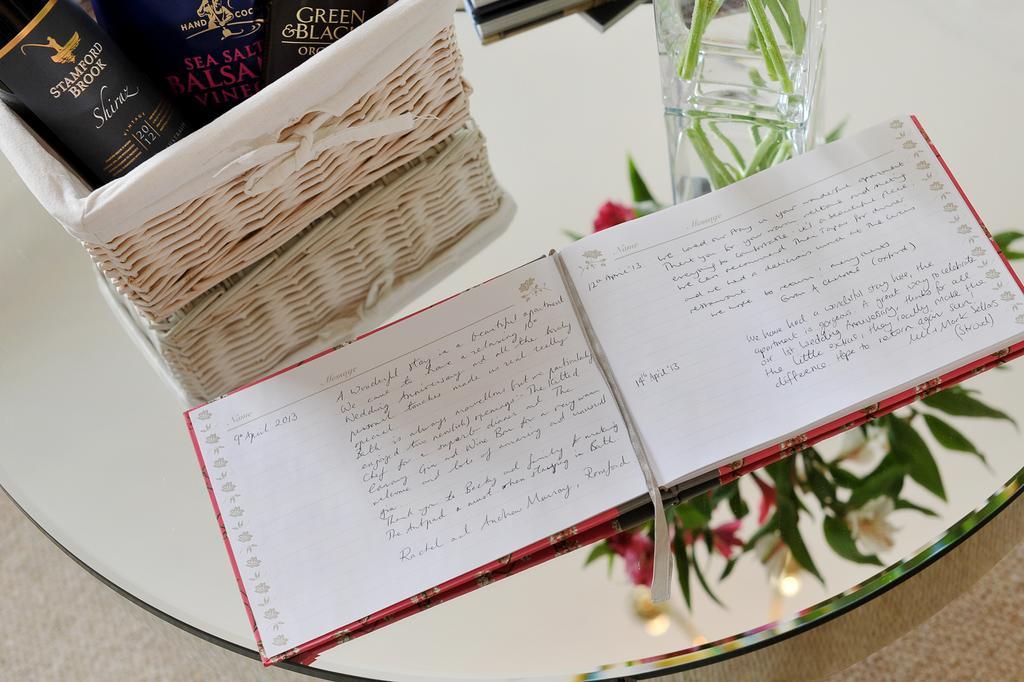 STAMFORD
BROOK
Shiraz
VINTAGE
2012
HAND COO
SEA SALT
BALSA
VINEG
GREEN
& BLACK
ORG
Name Message
9th April 2013
A wonderful stay in a beautiful apartment
We came to have a relaxing 10th
Wedding Anniversary and all the lovely
personal touches made us feel really
special
Bath is always marvellous but we particularly
enjoyed two new(ish) openings - The Kilted
Chef for a superb dinner and The
Canary Gin and Wine Bar for a very warm
welcome and lots of amazing and unusual
gin
Thank you to Becky and family for making
The Artpad a must when staying in Bath
Rachel and Andrew Murray, Romford
Name Message
12th April '13
We loved our stay in your wonderful apartment
Thank you for your warm welcome and making
everything so comfortable in a beautiful place.
We can recommend Thai for dinner
and we had a delicious lunch at the Circus
restaurant
We hope to return! many thanks
14th April '13
We have had a wonderful stay here, the
apartment is gorgeous. A great way to celebrate
our 1st Wedding Anniversary, thanks for all
the little extras, they really make the
difference. Hope to return again soon.
Mark Sellars
(Stroud)